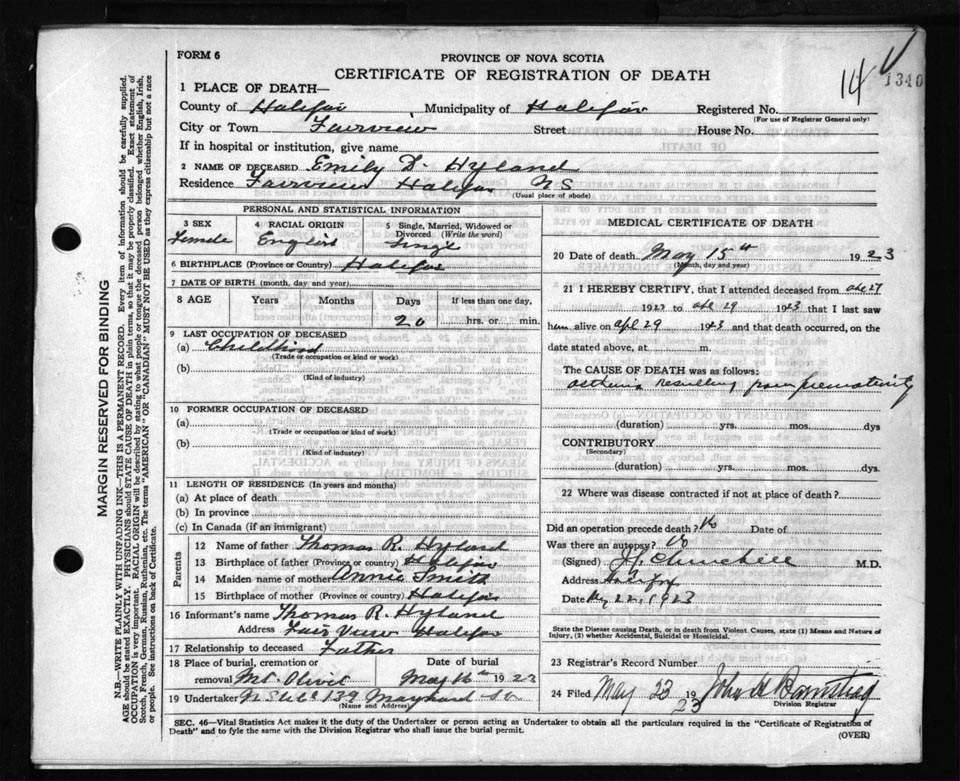 FORM 6
PROVINCE OF NOVA SCOTIA
CERTIFICATE OF REGISTRATION OF DEATH
14
1340
1 PLACE OF DEATH—
County of Halifax Municipality of Halifax Registered No.
(For use of Registrar General only)
City or Town Fairview Street House No.
If in hospital or institution, give name
2 NAME OF DECEASED Emily Hyland
Residence Fairview Halifax N S
(Usual place of abode)
PERSONAL AND STATISTICAL INFORMATION
3 SEX 4 RACIAL ORIGIN 5 Single, Married, Widowed or Divorced (Write the word)
Female English Single
6 BIRTHPLACE (Province or Country) Halifax
7 DATE OF BIRTH (month, day, and year)
8 AGE Years Months Days If less than one day,
20 hrs. or min.
9 LAST OCCUPATION OF DECEASED
(a) Childhood
(Trade or occupation or kind of work)
(b)
(Kind of industry)
10 FORMER OCCUPATION OF DECEASED
(a)
(Trade or occupation or kind of work)
(b)
(Kind of industry)
11 LENGTH OF RESIDENCE (In years and months)
(a) At place of death
(b) In province
(c) In Canada (if an immigrant)
Parents
12 Name of father Thomas R. Hyland
13 Birthplace of father (Province or country) Halifax
14 Maiden name of mother Annie Smith
15 Birthplace of mother (Province or country) Halifax
16 Informant's name Thomas R. Hyland
Address Fair View Halifax
17 Relationship to deceased Father
18 Place of burial, cremation or removal Mt Olivet Date of burial May 16th 1923
19 Undertaker 139 Maynard St
(Name and Address)
MEDICAL CERTIFICATE OF DEATH
20 Date of death May 15th 1923
(Month, day and year)
21 I HEREBY CERTIFY, that I attended deceased from apl 27
1923 to apl 29 1923 that I last saw
her alive on apl 29 1923 and that death occurred, on the
date stated above, at m.
The CAUSE OF DEATH was as follows:
asthenia resulting from prematurity
(duration) yrs. mos. dys
CONTRIBUTORY
(Secondary)
(duration) yrs. mos. dys.
22 Where was disease contracted if not at place of death?
Did an operation precede death? No Date of
Was there an autopsy? No
(Signed) Churchill M.D.
Address Halifax
Date My 22, 1923
State the Disease causing Death, or in death from Violent Causes, state (1) Means and Nature of
Injury, (2) whether Accidental, Suicidal or Homicidal.
23 Registrar's Record Number
24 Filed May 23 1923 John
Division Registrar
SEC. 46—Vital Statistics Act makes it the duty of the Undertaker or person acting as Undertaker to obtain all the particulars required in the "Certificate of Registration of
Death" and to fyle the same with the Division Registrar who shall issue the burial permit.
(OVER)
MARGIN RESERVED FOR BINDING
N.B.—WRITE PLAINLY WITH UNFADING INK—THIS IS A PERMANENT RECORD. Every item of information should be carefully supplied.
AGE should be stated EXACTLY. PHYSICIANS should STATE CAUSE OF DEATH in plain terms, so that it may be properly classified. Exact statement of
OCCUPATION is very important. RACIAL ORIGIN will be described by stating to what people or tongue the deceased person belonged whether English, Irish,
Scotch, French, German, Russian, Ruthenian, etc. The terms "AMERICAN" OR "CANADIAN" MUST NOT BE USED as they express citizenship but not a race
or people. See instructions on back of Certificate.